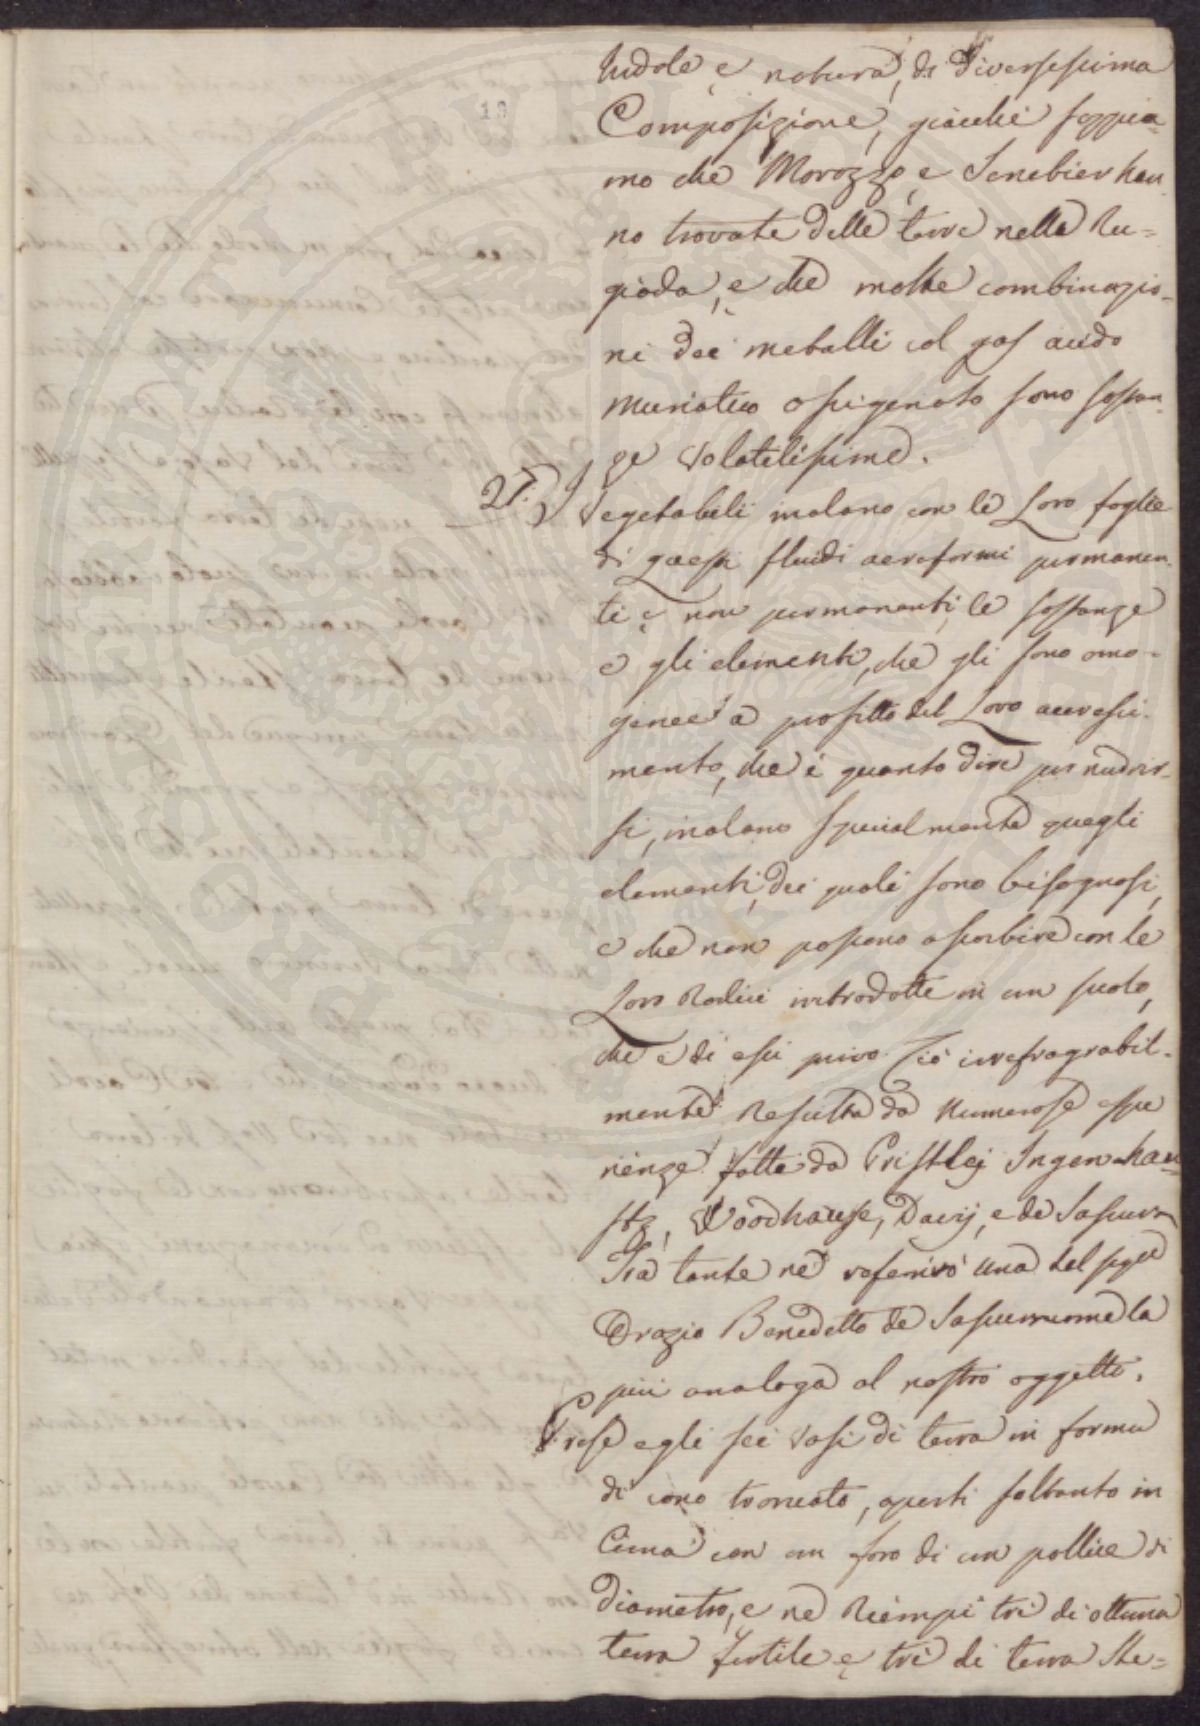 Indole e natura, di diversissima
Composizione, giacchè sappia-
mo che Morozzo, e Senebier han-
no trovate delle terre nella Ru-
giada, e che molte combinazio-
ni dei metalli col gas acido
muriatico ossigenato sono sostan-
ze volatilissime.
27. I Vegetabili inalano con le Loro foglie
di questi fluidi aereformi permanen-
ti e non permanenti, le sostanze
e gli elementi, che gli sono omo-
genei a profitto del Loro accresci-
mento, che è quanto dire per nudrir-
si, inalano specialmente quegli
elementi, dei quali sono bisognosi,
e che non possono assorbire con le
Loro Radici introdotte in un suolo,
che è di essi privo. Ciò irrefragabil-
mente Resulta da numerose espe
rienze fatte da Pristlej Ingen-hau-
stz, Woodhause, Davij, e de Saussure
Tra tante ne referirò una del sigre
Orazio Benedetto de Saussurre la
più analoga al nostro oggetto.
Prese egli sei vasi di terra in forma
di cono troncato, aperti soltanto in
Cima con un foro di un pollice di
diametro, e ne Riempì tre di ottima
terra fertile e tre di terra Ste-